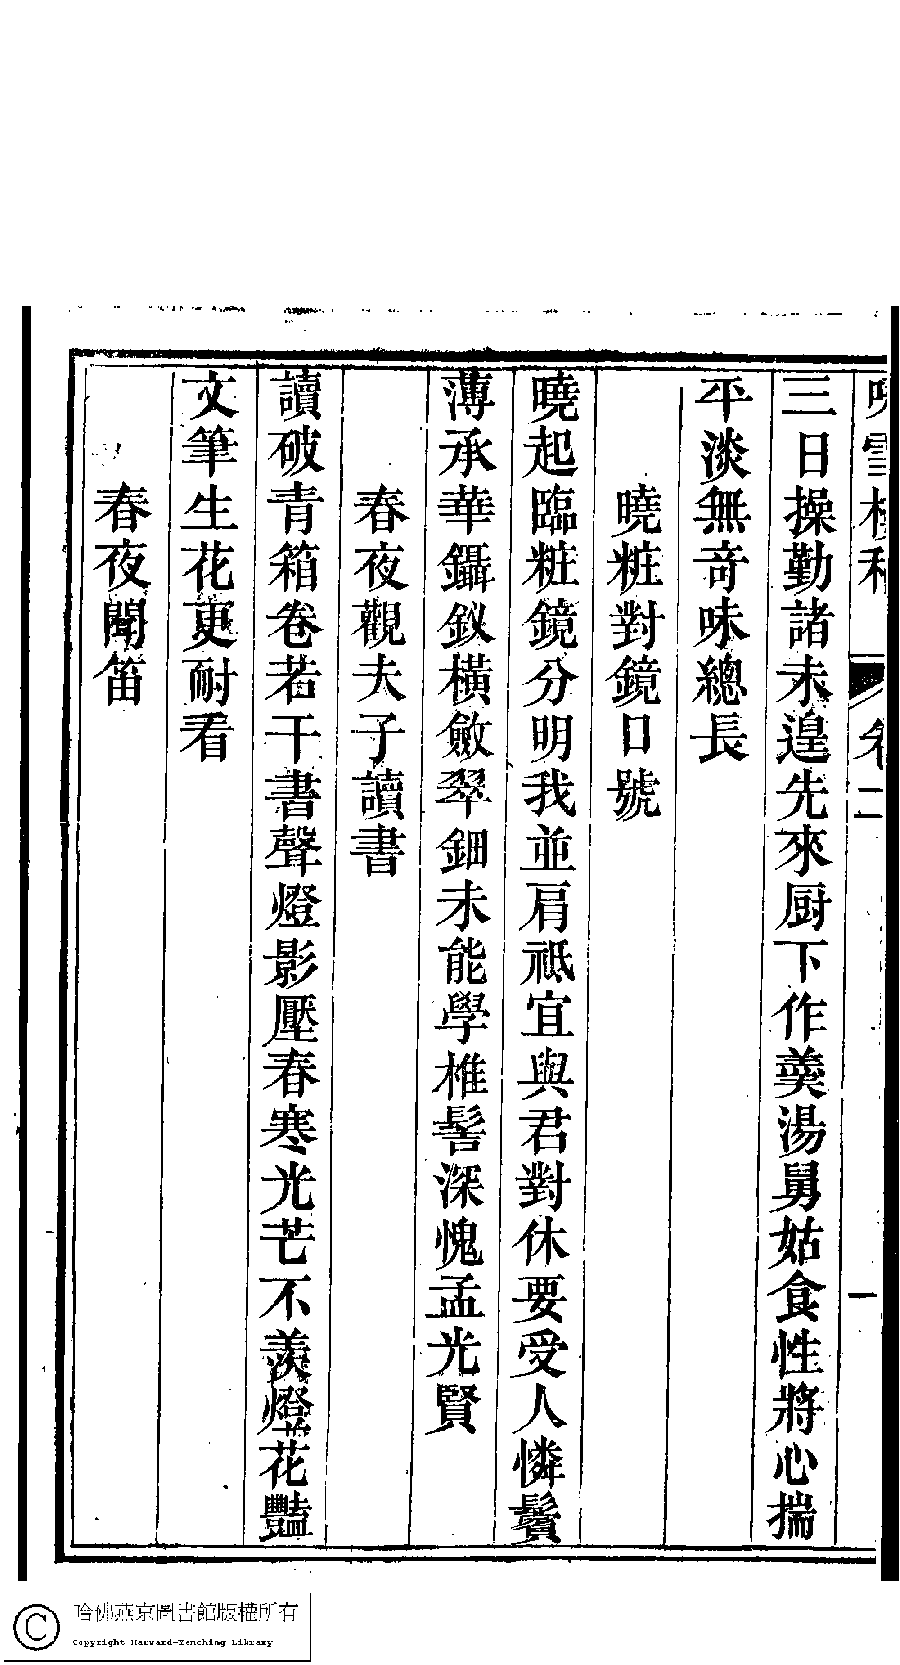 雪樓 卷二 一
三日操勤諸未遑先來厨下作羹湯舅姑食性將心揣
平淡無奇味總長
曉粧對鏡口號
曉起臨粧鏡分明我並肩祗宜與君對休要受人憐鬢
薄承華鑷釵橫斂翠鈿未能學椎髻深愧孟光賢
春夜觀夫子讀書
讀破青箱卷若干書聲燈影壓春寒光芒不羨燈花豔
文筆生花更耐看
春夜聞笛
哈佛燕京圖書館版權所有
Copyright Harvard-Yenching Library